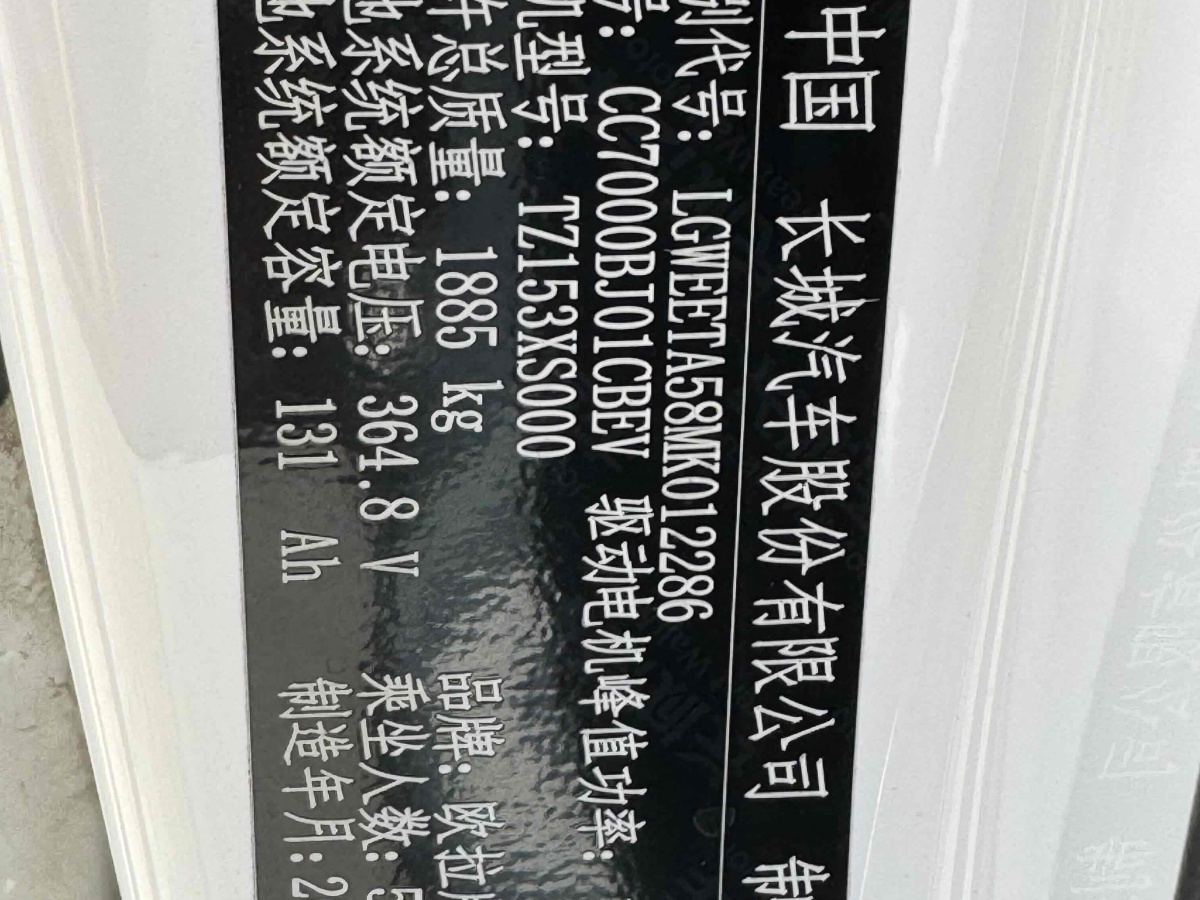 中国 长城汽车股份有限公司 制
别代号: LGWEETA58MK012286
号: CC7000BJ01CBEV 驱动电机峰值功率:
机型号: TZ153XS000
车总质量: 1885 kg 品牌: 欧拉
池系统额定电压: 364.8 V 乘坐人数: 5
池系统额定容量: 131 Ah 制造年月: 2